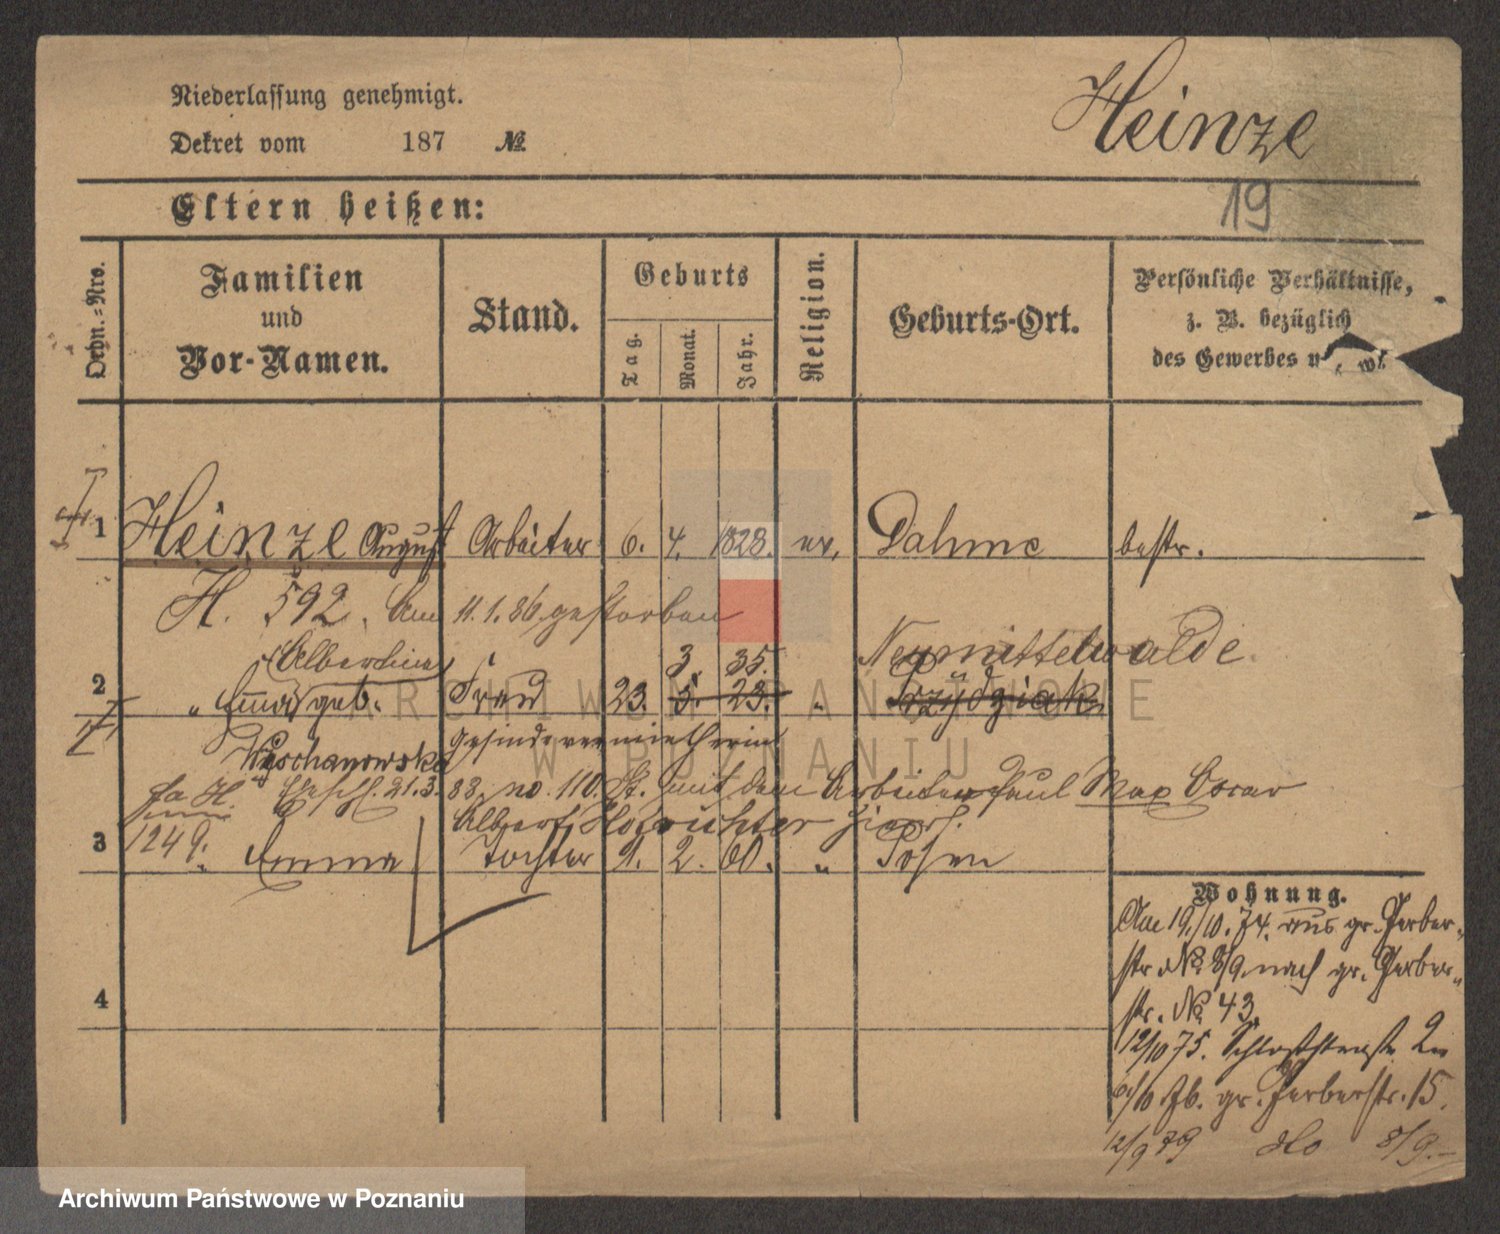 Niederlassung genehmigt.
Heinze
Dekret vom 187 №
19
Eltern heißen:
Ordn.=Nro.
Familien
und
Vor-Namen.
Stand.
Geburts
Tag.
Monat.
Jahr.
Religion.
Geburts-Ort.
Persönliche Verhältnisse,
z. B. bezüglich
des Gewerbes
1 Heinze August Arbeiter 6. 4. 1828. ev. Dahme bestr.
H. 592. Am 11.1.86 gestorben
Albertine 3. 35. Neumittelwalde.
2 " geb. Frau 23. 5. 23. "
Gesindevermietherin
88. no. 110. St. mit dem Arbeiter Paul Max Oscar
Albert
1249.
3 Emma Tochter 1. 2. 60. " Posen
Wohnung.
Am 19./10. 74. aus gr. Gerber-
str. № 8/9. nach gr. Gerber-
str. № 43.
4
12/10 75. Schloßstraße 2
/10 76. gr. Gerberstr. 15.
12/9 79 do 8/9.
ARCHIWUM PAŃSTWOWE
W POZNANIU
Archiwum Państwowe w Poznaniu